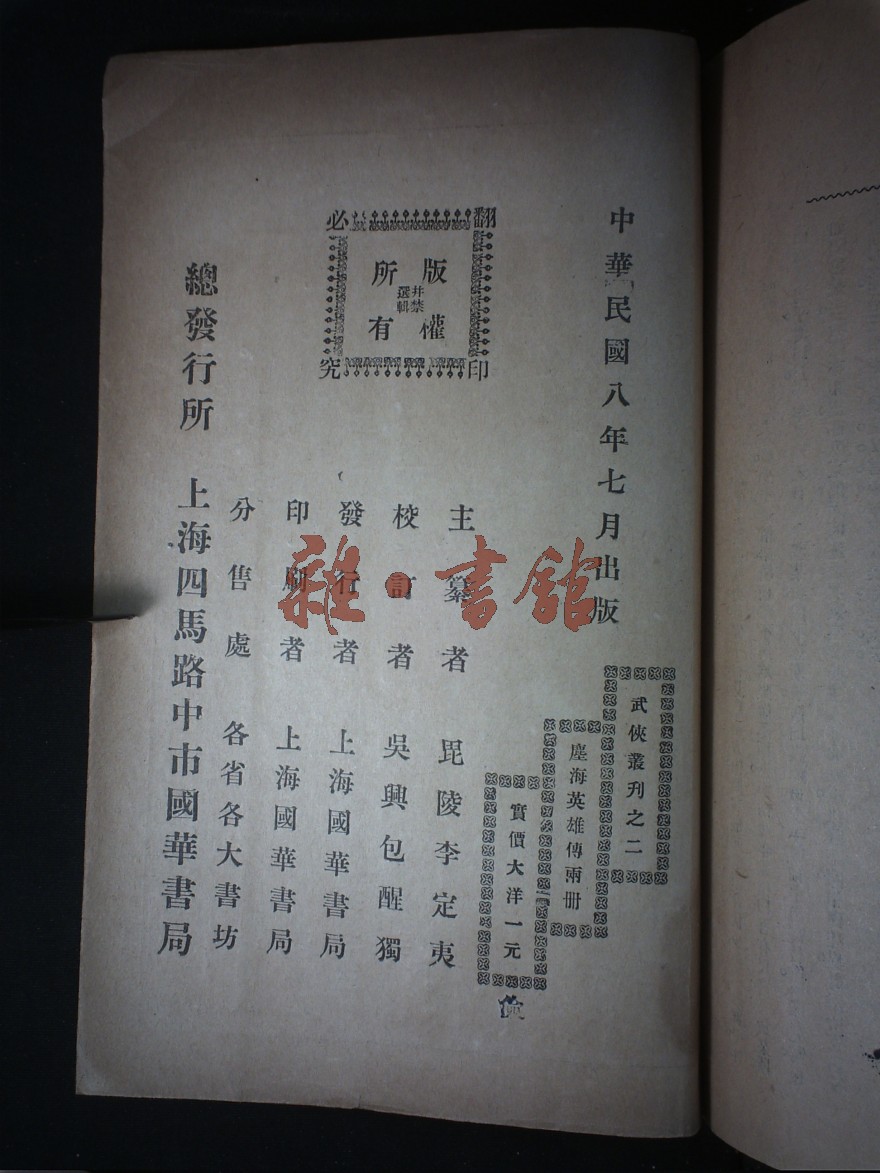 中華民國八年七月出版
武俠叢刊之二
塵海英雄傳兩册
實價大洋一元
翻印必究
版權所有
并禁選輯
主纂者 毘陵李定夷
校訂者 吳興包醒獨
發行者 上海國華書局
印刷者 上海國華書局
分售處 各省各大書坊
總發行所 上海四馬路中市國華書局
雜·書館